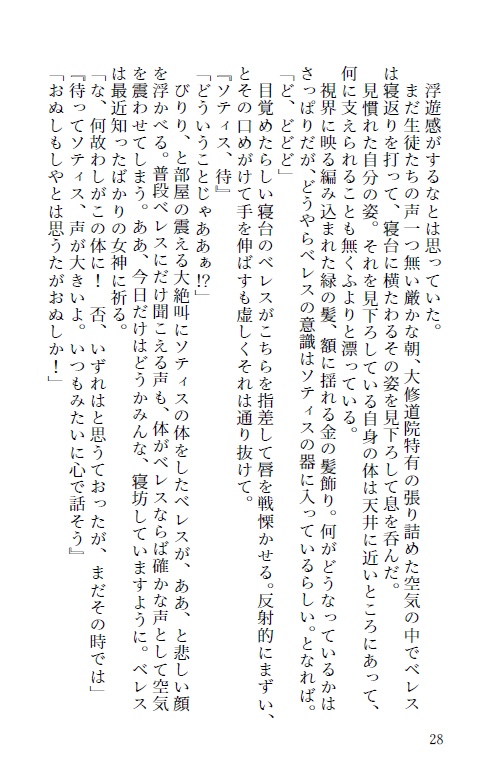 浮遊感がするなとは思っていた。
まだ生徒たちの声一つ無い厳かな朝、大修道院特有の張り詰めた空気の中でベレス
は寝返りを打って、寝台に横たわるその姿を見下ろして息を呑んだ。
見慣れた自分の姿。それを見下ろしている自身の体は天井に近いところにあって、
何に支えられることも無くふよりと漂っている。
視界に映る編み込まれた緑の髪、額に揺れる金の髪飾り。何がどうなっているかは
さっぱりだが、どうやらベレスの意識はソティスの器に入っているらしい。となれば。
「ど、どどど」
目覚めたらしい寝台のベレスがこちらを指差して唇を戦慄かせる。反射的にまずい、
とその口めがけて手を伸ばすも虚しくそれは通り抜けて。
『ソティス、待』
「どういうことじゃああぁ!?」
びりり、と部屋の震える大絶叫にソティスの体をしたベレスが、ああ、と悲しい顔
を浮かべる。普段ベレスにだけ聞こえる声も、体がベレスならば確かな声として空気
を震わせてしまう。ああ、今日だけはどうかみんな、寝坊していますように。ベレス
は最近知ったばかりの女神に祈る。
「な、何故わしがこの体に！　否、いずれはと思うておったが、まだその時では」
『待ってソティス、声が大きいよ。いつもみたいに心で話そう』
「おぬしもしやとは思うたがおぬしか！」
28